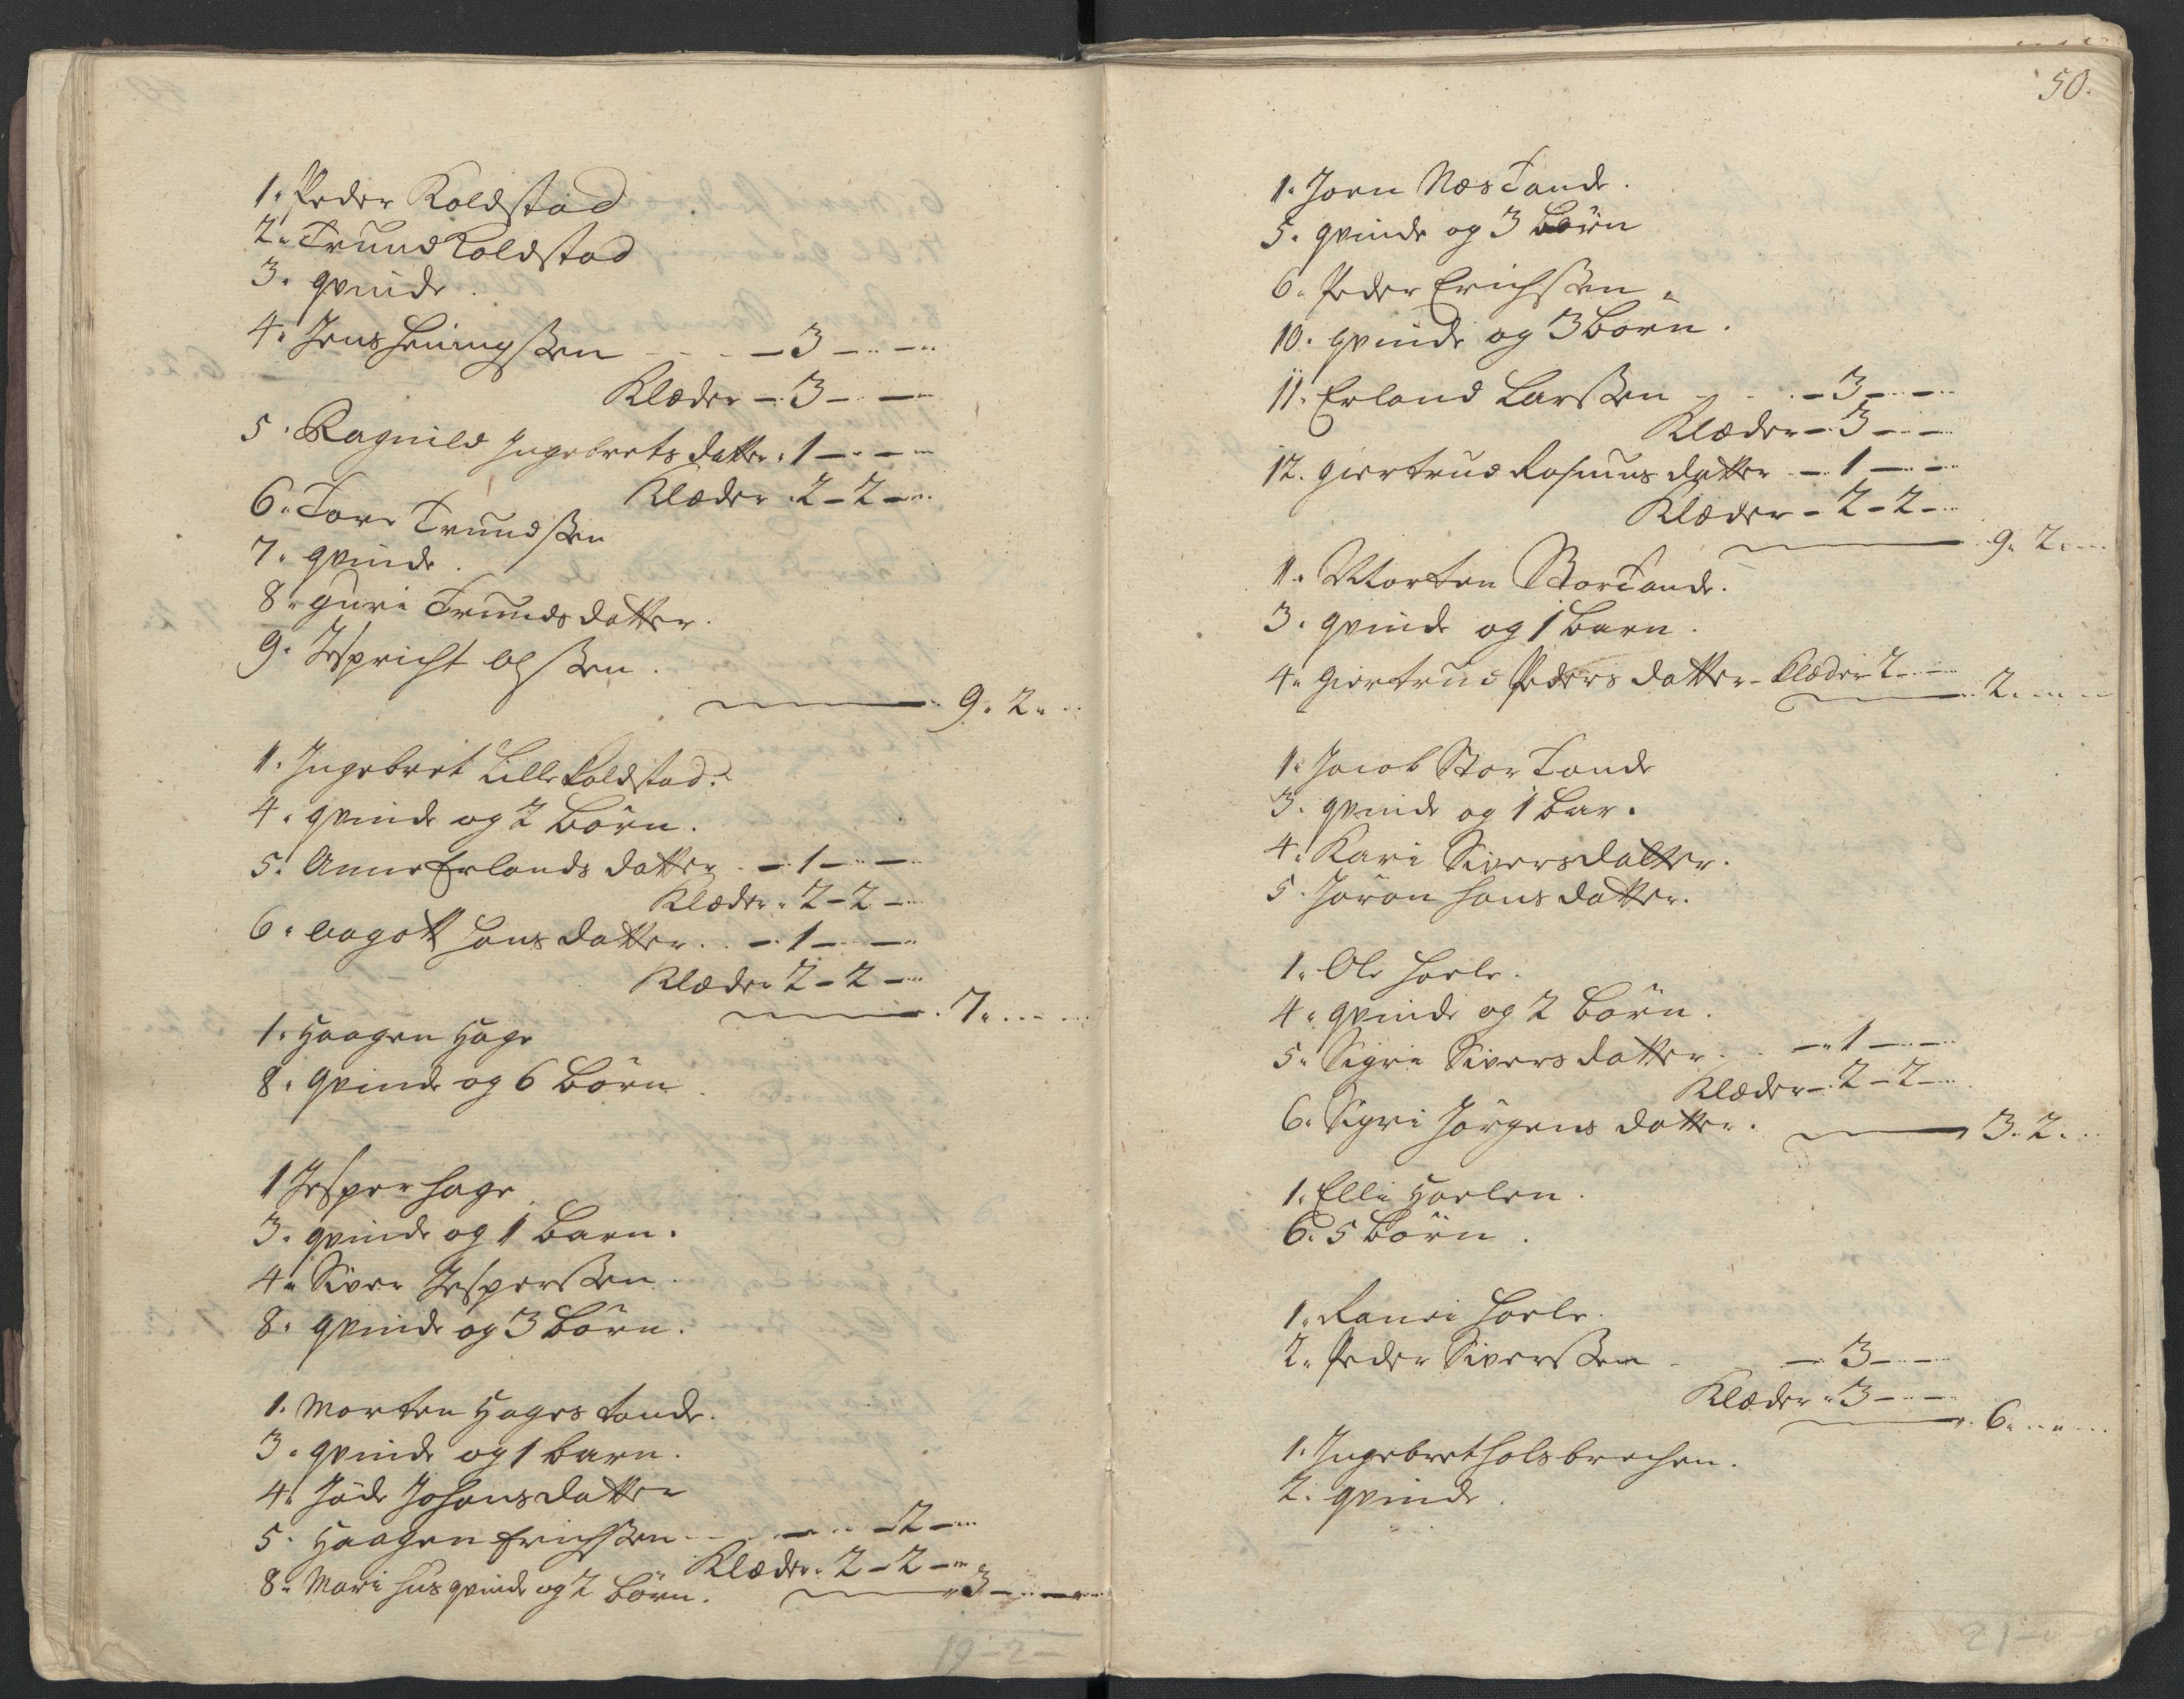 1. Peder Koldstad
2. Trund Koldstad
3. qvinde.
4. Jens Heningssen - - - 3 - .. - ..
Klæder - 3 - .. - ..
5. Ragnild Ingebrets datter. 1 - .. - ..
Klæder 2 - 2 - ..
6. Tore Trundssen
7. qvinde.
8. Guri Trunds datter.
9. Jespricht Olssen.
9. 2. ..
1. Ingebret Lille Koldstad.
4. qvinde og 2 Börn.
5. Anne Erlands datter. - 1 - .. - ..
Klæder. 2 - 2 - ..
6. Aagott Hans datter. - 1 - .. - ..
Klæder 2 - 2 - ..
7. .. ..
1. Haagen Hage
8. qvinde og 6 Börn.
1 Jesper Hage
3. qvinde og 1 Barn.
4. Siver Jesperssen.
8. qvinde og 3 Börn.
1. Morten Hages tande.
3. qvinde og 1 barn.
4. Jöde Johans datter
5. Haagen Erichssen - - - .. - 2 - ..
Klæder. 2 - 2 - ..
8. Mari husqvinde og 2 börn.
3 - .. - ..
19 - 2 -
50.
1. Joen Næs Tande.
5. qvinde og 3 Börn
6. Peder Erichssen.
10. qvinde og 3 Börn.
11. Erland Larssen - . . - 3 - .. - ..
Klæder - 3 - .. - ..
12. Giertrud Rasmus datter - 1 - .. - ..
Klæder - 2 - 2 - ..
9. 2. ..
1. Morten StorTande.
3. qvinde og 1 Barn.
4. Giertrud Peders datter - Klæder 2 - .. - ..
2. .. ..
1. Jacob Stor Tande
3. qvinde og 1 Bar.
4. Kari Sivers datter.
5. Jöron Hans datter.
1. Ole Horle.
4. qvinde og 2 Börn.
5. Sigri Sivers datter. . - 1 - .. - ..
Klæder - 2 - 2 - ..
6. Sigri Jörgens datter.
3. 2. ..
1. Elli Horlen.
6. 5 Börn.
1. Ranei Horle.
2. Peder Siverssen - - 3 - .. - ..
Klæder. 3 - .. - ..
6. .. ..
1. Ingebret Holsbrechen.
2. qvinde.